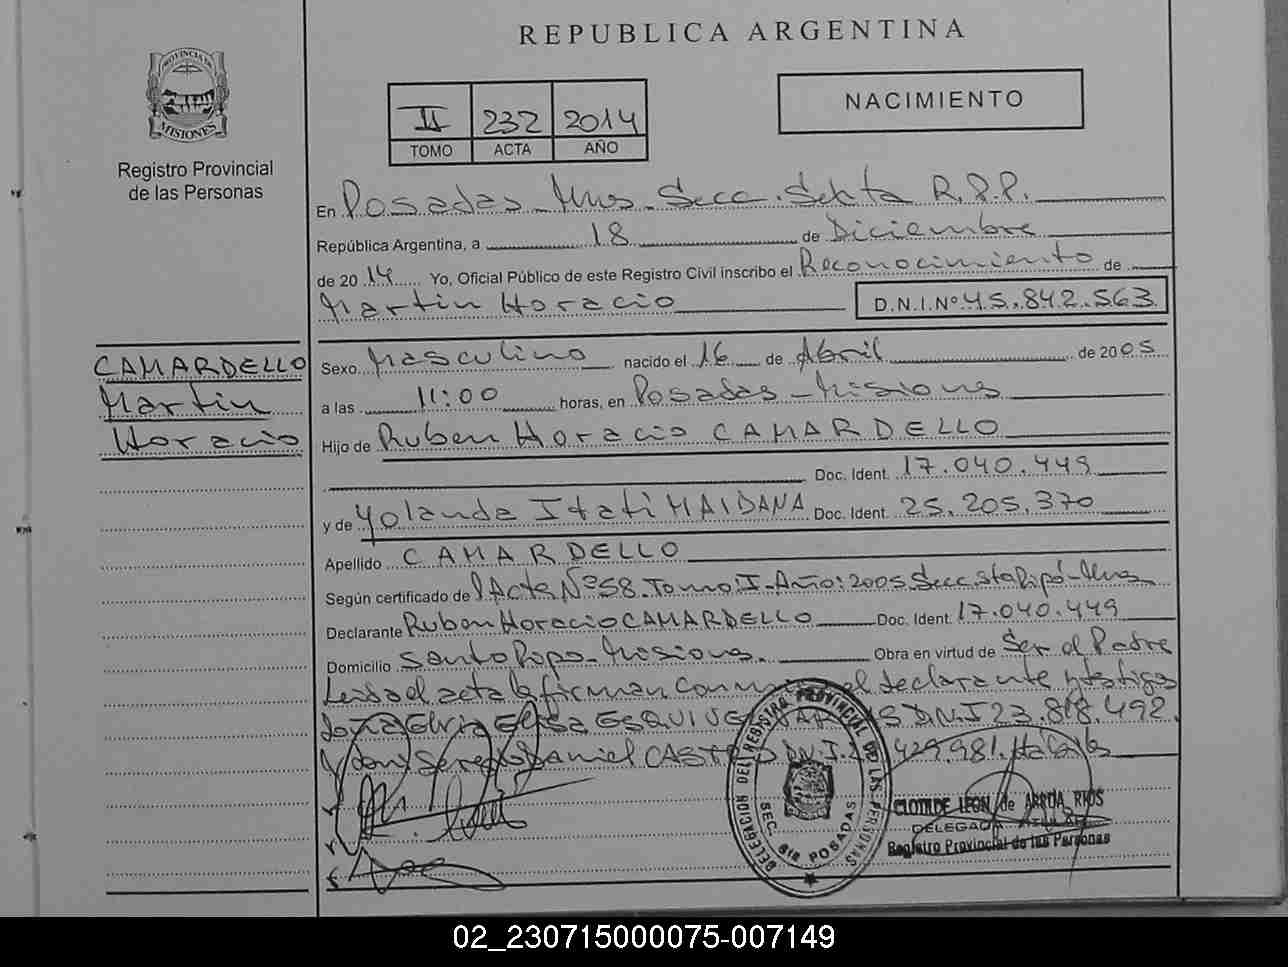 REPUBLICA ARGENTINA
PROVINCIA DE
MISIONES
Registro Provincial
de las Personas
II 232 2014
TOMO ACTA AÑO
NACIMIENTO
En Posadas - Mnes - Secc. Sexta R.P.P.
República Argentina, a 18 de Diciembre
de 2014 Yo, Oficial Público de este Registro Civil inscribo el Reconocimiento de
Martin Horacio D.N.I.Nº 45.842.563
CAMARDELLO
Martin
Horacio
Sexo Masculino nacido el 16 de Abril de 2005
a las 11:00 horas, en Posadas - Misiones
Hijo de Ruben Horacio CAMARDELLO
Doc. Ident. 17.040.449
y de Yolanda Itati MAIDANA Doc. Ident. 25.205.370
Apellido CAMARDELLO
Según certificado de Acta Nº 58. Tomo: I - Año: 2005 Secc. Sto Pipó - Mnes
Declarante Ruben Horacio CAMARDELLO Doc. Ident. 17.040.449
Domicilio Santo Pipo - Misiones. Obra en virtud de Ser el Padre
Leida el acta la firman conmigo el declarante y testigos
doña Elvia Elisa ESQUIVEL D.N.I 23.818.492.
y don Sergio Daniel CASTRO D.N.I. 429.981. Hábiles
DELEGACION DEL REGISTRO PROVINCIAL DE LAS PERSONAS
SEC. 6ta POSADAS
CLOTILDE LEON de ARRUA RIOS
DELEGADA
Registro Provincial de las Personas
02_230715000075-007149